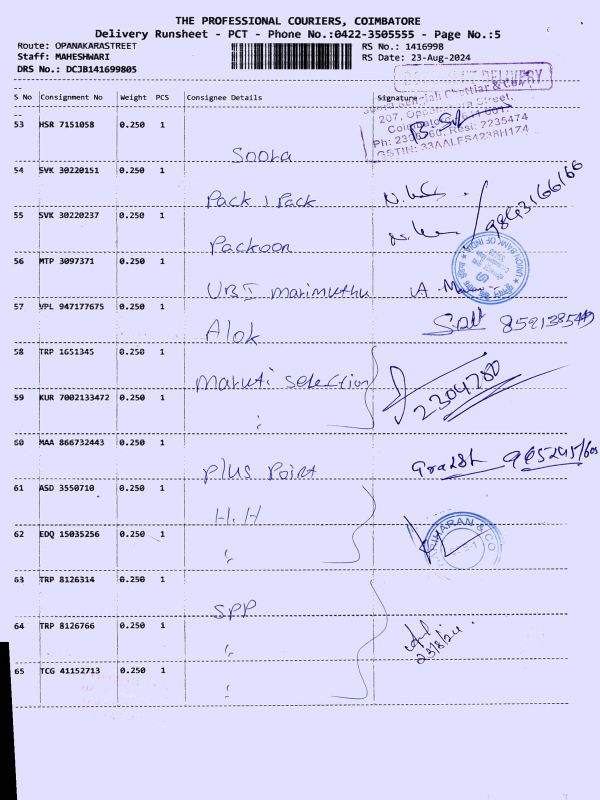 THE PROFESSIONAL COURIERS, COIMBATORE
Delivery Runsheet - PCT - Phone No.:0422-3505555 - Page No.:5
Route: OPANAKARASTREET RS No.: 1416998
Staff: MAHESHWARI RS Date: 23-Aug-2024
DRS No.: DCJB141699805
S No Consignment No Weight PCS Consignee Details Signature
53 HSR 7151058 0.250 1
207, Oppanakara Street,
Ph: 2235474
GSTIN: 33AALFS4238H174
54 SVK 30220151 0.250 1
Pack 1 Pack
9843166166
55 SVK 30220237 0.250 1
Packoon
56 MTP 3097371 0.250 1
UNION BANK OF INDIA
UBI marimuthu
57 VPL 947177675 0.250 1
Alok
58 TRP 1651345 0.250 1
maruti selection
2304780
59 KUR 7002133472 0.250 1
"
60 MAA 866732443 0.250 1
Plus Point
61 ASD 3550710 0.250 1
H.H
HARIHARAN & CO
62 EDQ 15035256 0.250 1
"
63 TRP 8126314 0.250 1
SPP
64 TRP 8126766 0.250 1
"
23/8/24
65 TCG 41152713 0.250 1
"